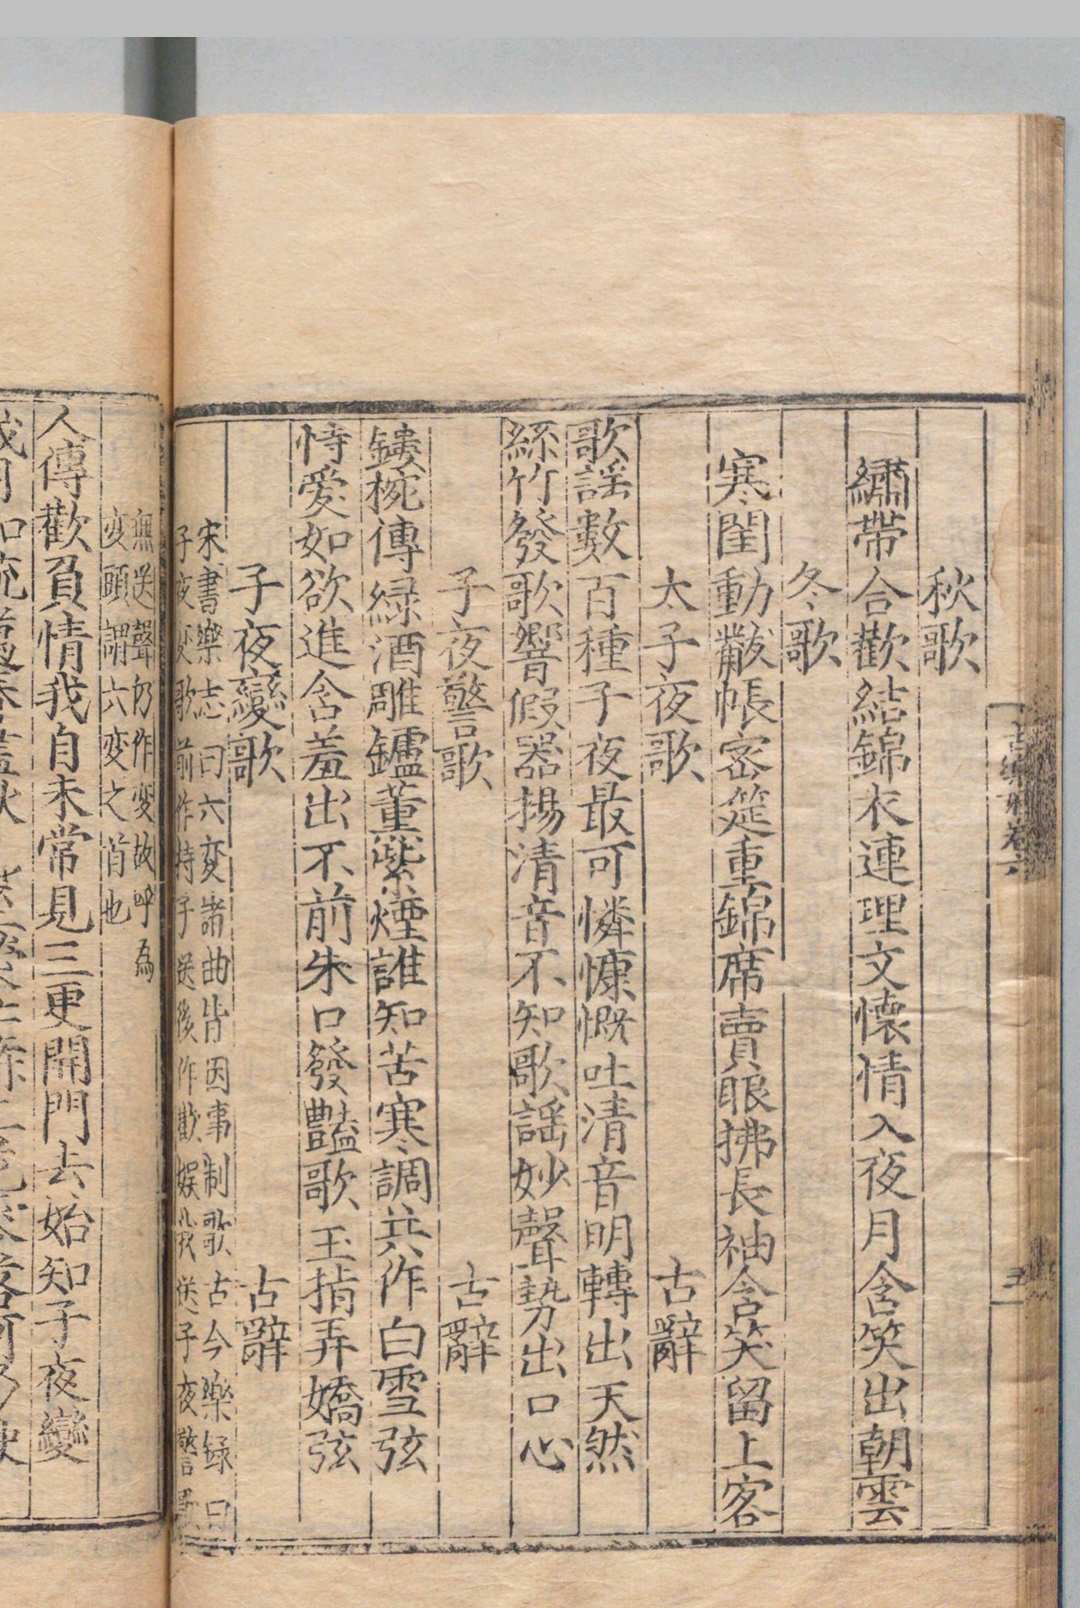 秋歌
繡帶合歡結錦衣連理文懷情入夜月含笑出朝雲
冬歌
寒閨動黻帳密筵重錦席賣眼拂長袖含笑留上客
太子夜歌 古辭
歌謡數百種子夜最可憐慷慨吐清音明轉出天然
絲竹發歌響假器揚清音不知歌謡妙聲勢出口心
子夜警歌 古辭
鏤椀傳緑酒雕鑪薰紫煙誰知苦寒調共作白雪弦
恃愛如欲進含羞出不前朱口發豔歌玉指弄嬌弦
子夜變歌 古辭
宋書樂志曰六変諸曲皆因事制歌古今樂録曰
子夜変歌前作持子送後作歡娱我送子夜警歌
無送聲仍作変故呼為
変頭謂六変之首也
人傳歡負情我自未常見三更開門去始知子夜變